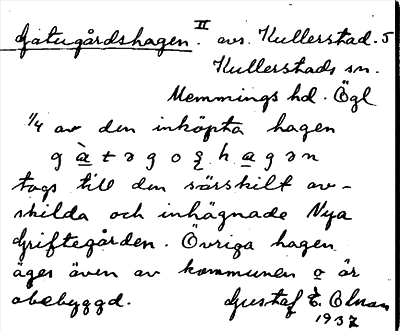 Gatugårdshagen. II avs. Kullerstad. 5
Kullerstads sn.
Memmings hd. Ögl
1/4 av den inköpta hagen
g à t ə g o ȿ h a g ə n
togs till den särskilt av-
skilda och inhägnade Nya
Griftegården. Övriga hagen
äges även av kommunen o är
obebyggd. Gustaf E. Olman
1937